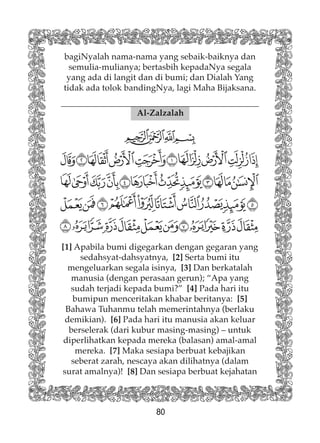 bagiNyalah nama-nama yang sebaik-baiknya dan
semulia-mulianya; bertasbih kepadaNya segala
yang ada di langit dan di bumi; dan Dialah Yang
tidak ada tolok bandingNya, lagi Maha Bijaksana.
Al-Zalzalah
بِسْمِ ٱللَّهِ ٱلرَّحْمَٰنِ ٱلرَّحِيمِ
إِذَا زُلْزِلَتِ ٱلْأَرْضُ زِلْزَالَهَا ١ وَأَخْرَجَتِ ٱلْأَرْضُ أَثْقَالَهَا ٢ وَقَالَ
ٱلْإِنسَٰنُ مَا لَهَا ٣ يَوْمَئِذٍ تُحَدِّثُ أَخْبَارَهَا ٤ بِأَنَّ رَبَّكَ أَوْحَىٰ لَهَا
٥ يَوْمَئِذٍ يَصْدُرُ ٱلنَّاسُ أَشْتَاتًا لِّيُرَوْا۟ أَعْمَٰلَهُمْ ٦ فَمَن يَعْمَلْ
مِثْقَالَ ذَرَّةٍ خَيْرًا يَرَهُۥ ٧ وَمَن يَعْمَلْ مِثْقَالَ ذَرَّةٍ شَرًّا يَرَهُۥ ٨
[1] Apabila bumi digegarkan dengan gegaran yang
sedahsyat-dahsyatnya, [2] Serta bumi itu
mengeluarkan segala isinya, [3] Dan berkatalah
manusia (dengan perasaan gerun); "Apa yang
sudah terjadi kepada bumi?" [4] Pada hari itu
bumipun menceritakan khabar beritanya: [5]
Bahawa Tuhanmu telah memerintahnya (berlaku
demikian). [6] Pada hari itu manusia akan keluar
berselerak (dari kubur masing-masing) – untuk
diperlihatkan kepada mereka (balasan) amal-amal
mereka. [7] Maka sesiapa berbuat kebajikan
seberat zarah, nescaya akan dilihatnya (dalam
surat amalnya)! [8] Dan sesiapa berbuat kejahatan
80